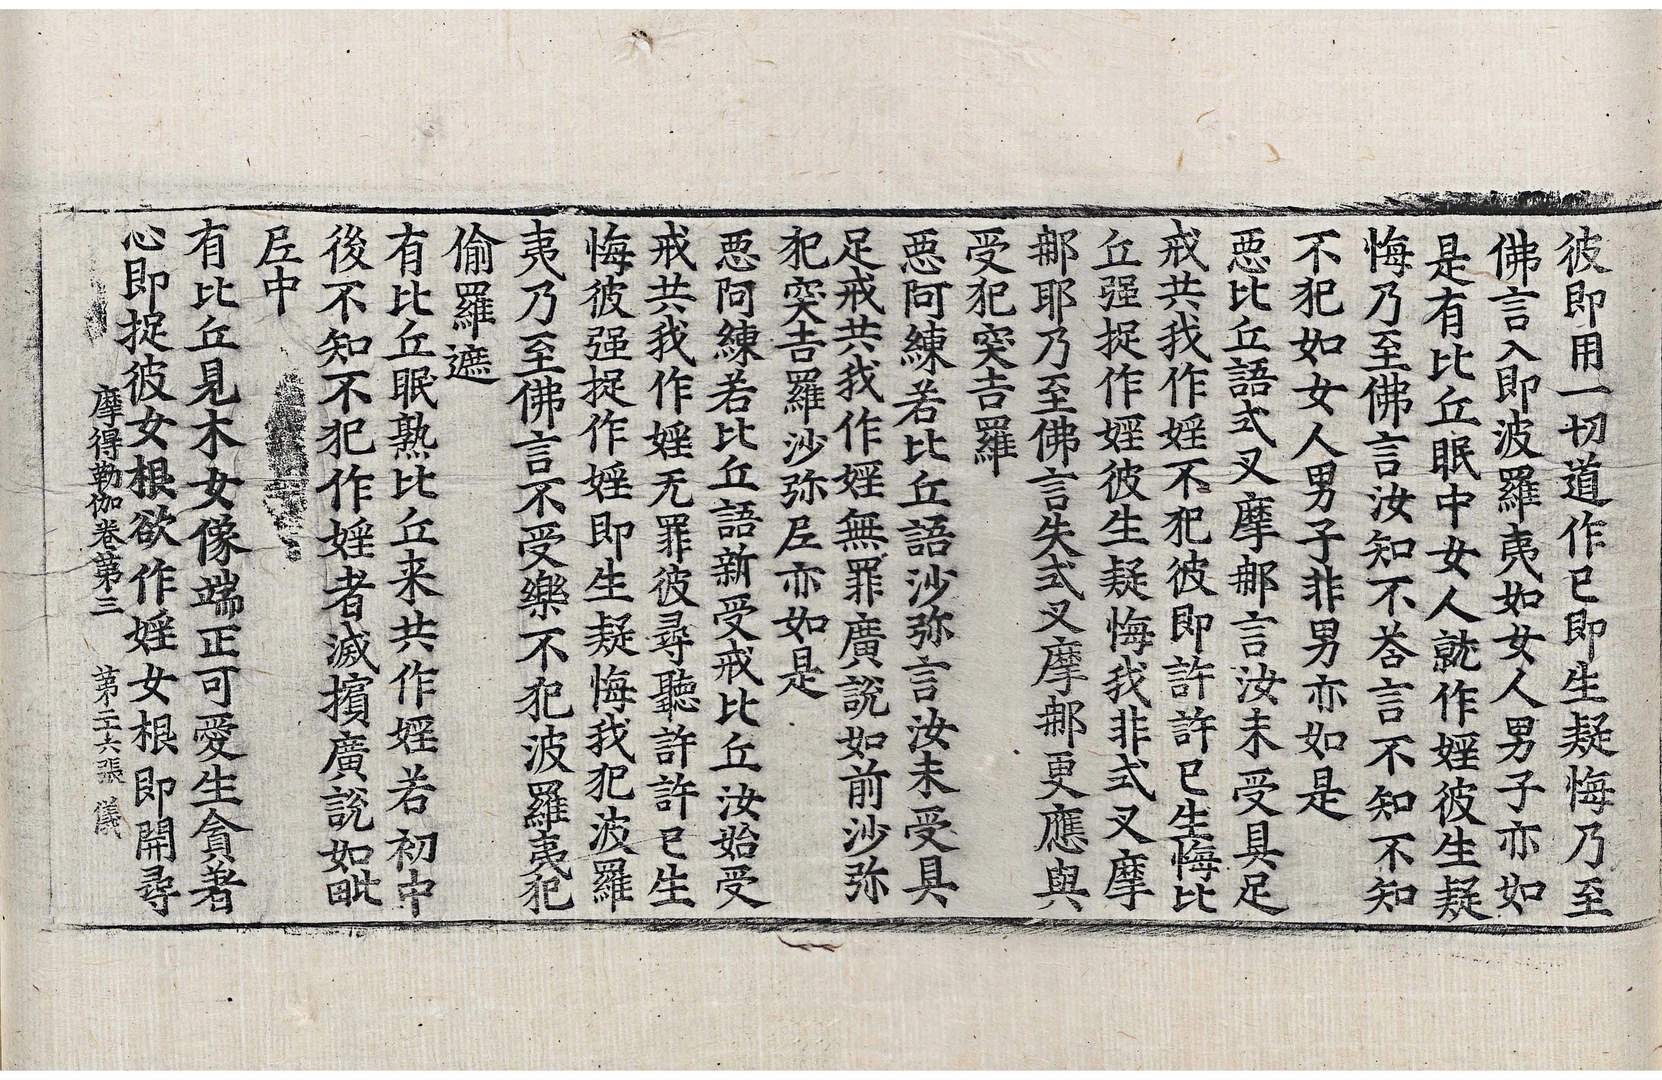 彼即用一切道作已即生疑悔乃至
佛言入即波羅夷如女人男子亦如
是有比丘眠中女人就作婬彼生疑
悔乃至佛言汝知不荅言不知不知
不犯如女人男子非男亦如是
惡比丘語式叉摩郍言汝未受具足
戒共我作婬不犯彼即許許已生悔比
丘强捉作婬彼生疑悔我非式叉摩
郍耶乃至佛言失式叉摩郍更應與
受犯突吉羅
惡阿練若比丘語沙弥言汝未受具
足戒共我作婬無罪廣說如前沙弥
犯突吉羅沙弥尼亦如是
惡阿練若比丘語新受戒比丘汝始受
戒共我作婬无罪彼尋聽許許已生
悔彼强捉作婬即生疑悔我犯波羅
夷乃至佛言不受樂不犯波羅夷犯
偷羅遮
有比丘眠熟比丘来共作婬若初中
後不知不犯作婬者滅擯廣說如毗
尼中
有比丘見木女像端正可愛生貪著
心即捉彼女根欲作婬女根即開尋
摩得勒伽卷第三 第二十六張 儀